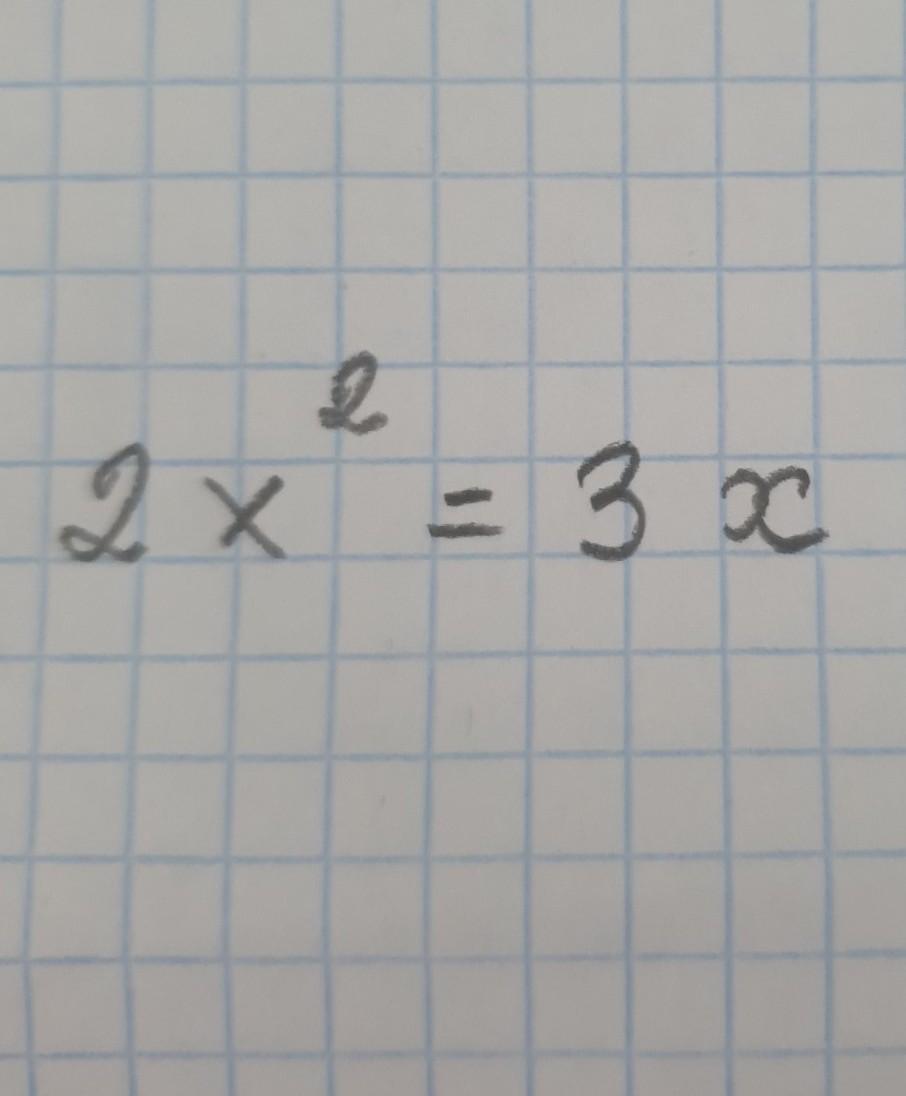 2x² = 3x